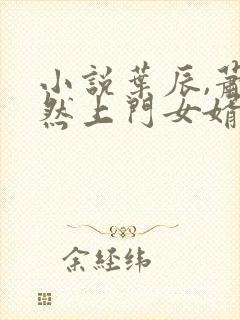 小說葉辰,蕭
然上門女婿
余經緯